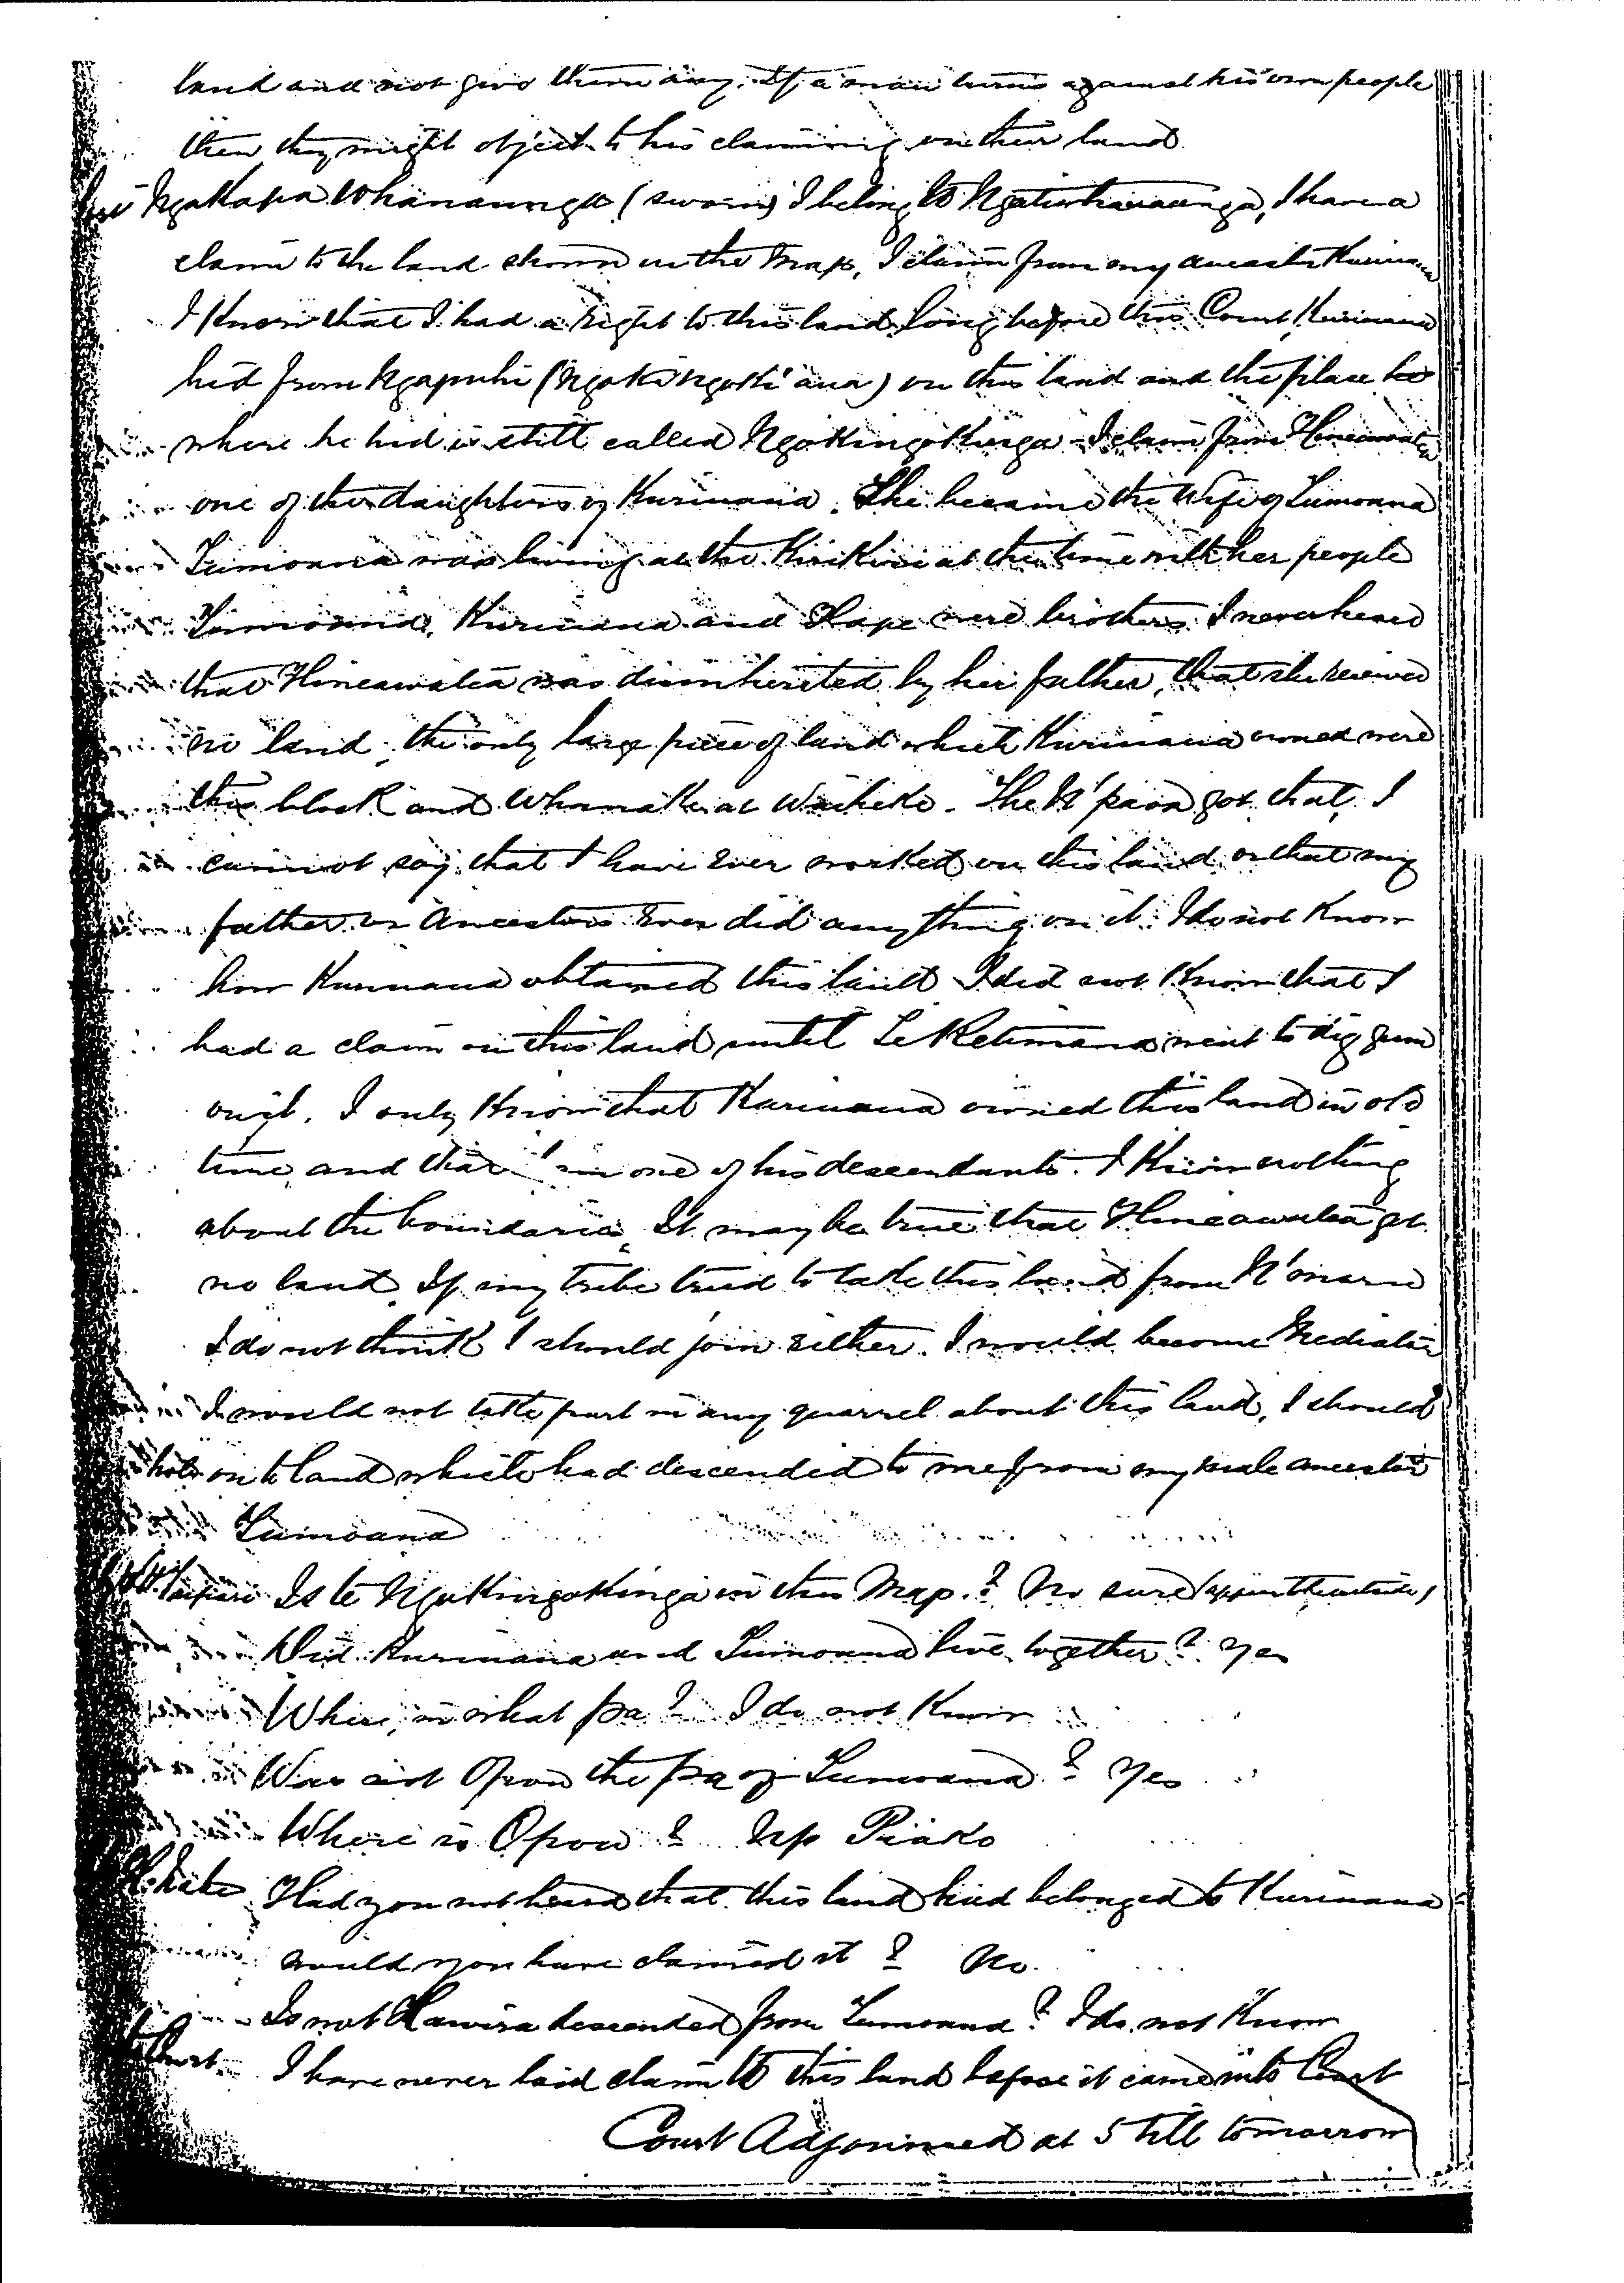 land and not give them any. If a man turns against his own people
then they might object to his claiming on their land
Ngakapa Whanaunga (sworn) I belong to Ngatiwhanaunga, I have a
claim to the land shown in the Map, I claim from my ancestor Kurinana
I know that I had a right to this land long before this Court, Kurinana
hid from Ngapuhi (Ngokingoki ana) on this land and the place
where he hid is still called Ngokingokinga - I claim from Hineawatea
one of the daughters of Kurinana. She became the Wife of Tumoana
Tumoana was living at the Kirikiri at the time with her people
Tumoana, Kurinana and Hape were brothers I never heard
that Hineawatea was disinherited by her father, that she received
no land, the only large piece of land which Kurinana owned were
this block and Whanake at Waiheke. The N'paoa got that, I
cannot say that I have ever worked on this land or that my
father or Ancestors ever did anything on it. I do not know
how Kurinana obtained this land I did not know that I
had a claim on this land until Te Retimana went to dig gum
on it. I only know that Kurinana owned this land in old
time and that I'm one of his descendants. I know nothing
about the boundaries, It may be true that Hineawatea got
no land. If my tribe tried to take this land from N'maru
I do not think I should join either. I would become Mediator
I would not take part in any quarrel about this land, I should
hold on to land which had descended to me from my male ancestor
Tumoana
Taipari Is te Ngokingokinga in this Map.? No sure
Did Kurinana and Tumoana live together? Yes
Where, in what pa? I do not know
Was not Opou the pa of Tumoana? Yes
Where is Opou? Up Piako
Had you not heard that this land had belonged to Kurinana
would you have claimed it? No.
Is not Hawira descended from Tumoana? I do not know
Court. I have never laid claim to this land before it came into Court
Court Adjourned at 5 till tomorrow